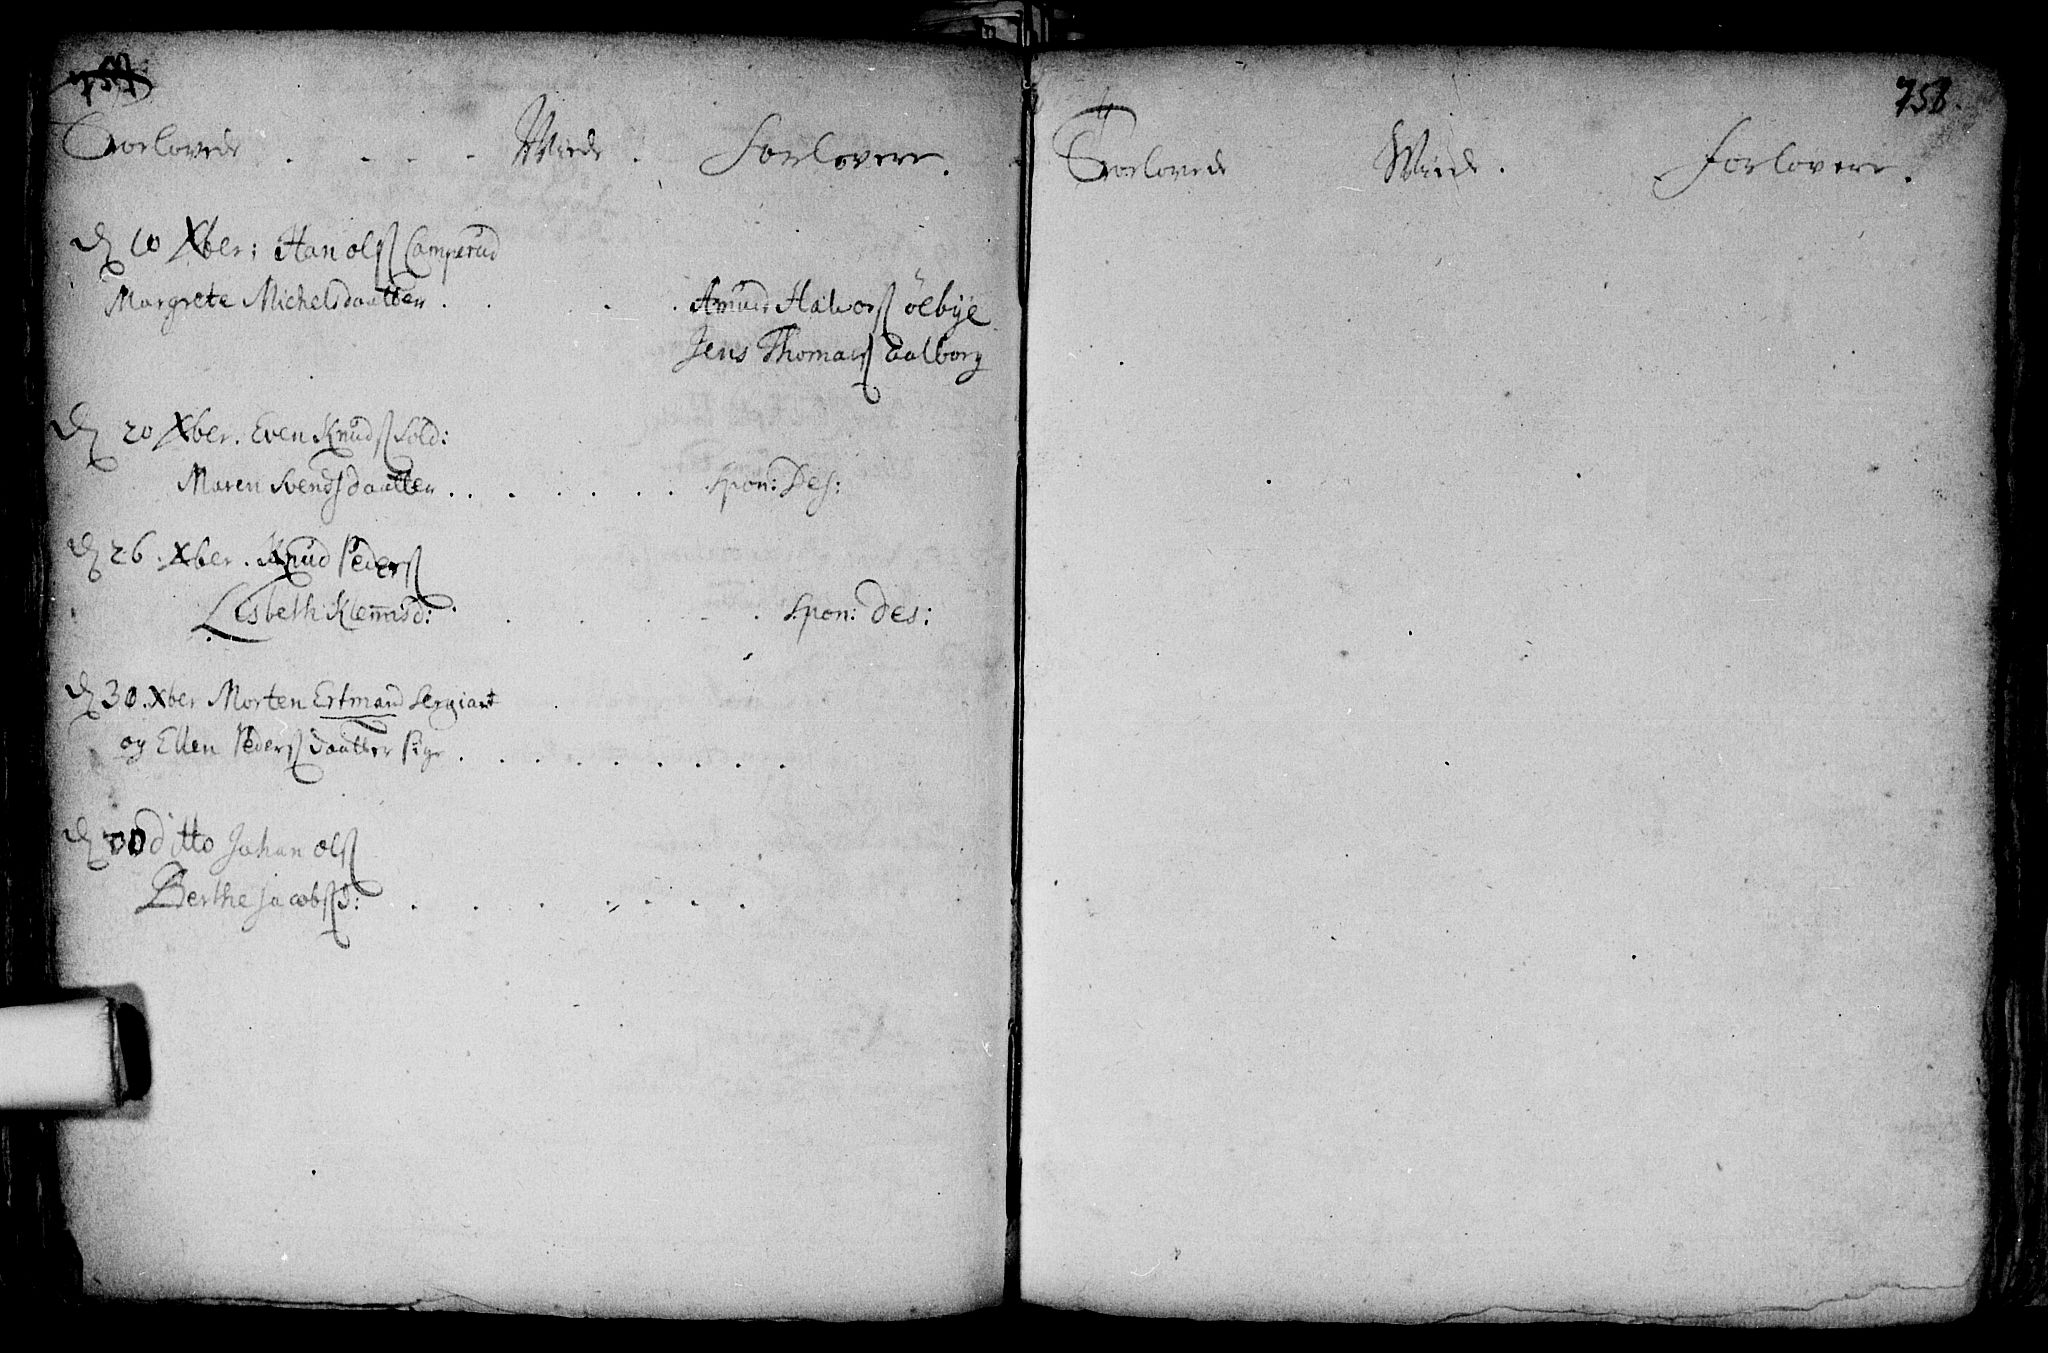 757
Forlovede . . . . Wiede . Forlovere .
dͤ 10 Xber: Han olß Camperud
Margrete Michelsdaatter . . . . Amund Halvorß ölbye
Jens Thomasß Aalborg
dͤ 20 Xber. Even Knudß Sold:
Maren Svendsdaatter . . . . . . . Spon: Des:
dͤ 26. Xber. Knud Pederß
Lisbeth Klem̄isd: . . . . . Spon: des:
dͤ 30. Xber Morten Ertmand Sergiant
og Ellen Pederß daatter . . . . . . . . .
dͤ 30 ditto Johan olß
Berthe Jacobßd: . . . . . . . .
758.
Forlovede Wiede . forlovere .